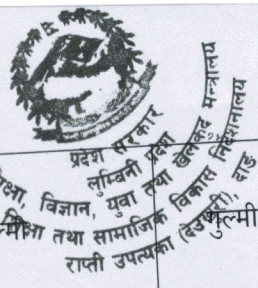 प्रदेश सरकार
लुम्बिनी प्रदेश
विज्ञान, युवा तथा खेलकुद मन्त्रालय
तथा सामाजिक विकास निर्देशनालय
राप्ती उपत्यका (देउखुरी), दाङ
गुल्मी